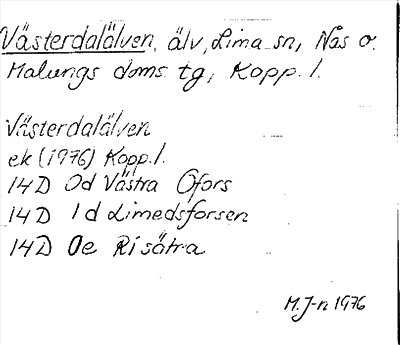 Västerdalälven, älv, Lima sn, Nås o.
Malungs doms. tg, Kopp. l.
Västerdalälven
ek (1976) Kopp. l.
14D 0d Västra Ofors
14D 1d Limedsforsen
14D 0e Risätra
M.J-n 1976